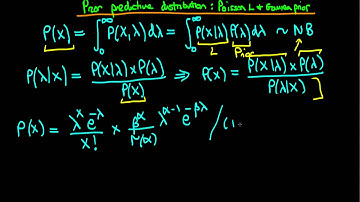 Prior predictive distribution : Poisson L & Gamma prior
P(x) = ∫₀^∞ P(x,λ) dλ = ∫₀^∞ P(x|λ) P(λ) dλ ~ NB
L Prior
P(λ|x) = P(x|λ) × P(λ) / P(x) ⇒ P(x) = P(x|λ) × P(λ) / P(λ|x)
P(x) = λ^x e^-λ / x! × β^α / Γ(α) λ^α-1 e^-βλ / (